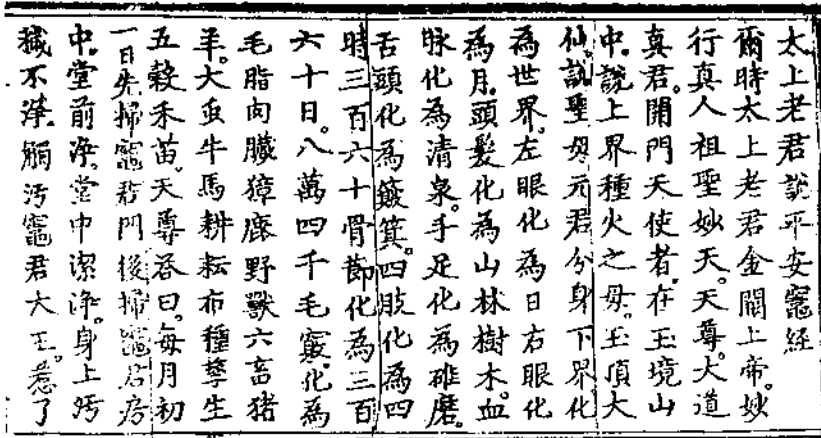 太上老君說平安竈經
爾時太上老君金闕上帝。妙
行真人祖聖妙天。天尊。大道
真君。開門天使者。在玉境山
中。說上界種火之母。玉頂大
仙。說聖母元君分身下界化
為世界。左眼化為日右眼化
為月。頭髮化為山林樹木。血
脉化為清泉。手足化為碓磨。
舌頭化為簸箕。四肢化為四
時三百六十骨節化為三百
六十日。八萬四千毛竅。化為
毛脂肉臟獐鹿野獸六畜猪
羊。大虫牛馬耕耘布種孳生
五穀禾苗。天尊答曰。每月初
一日先掃竈君門後掃竈君房
中。堂前淨。堂中潔淨。身上污
穢不淨。觸污竈君大王。惹了